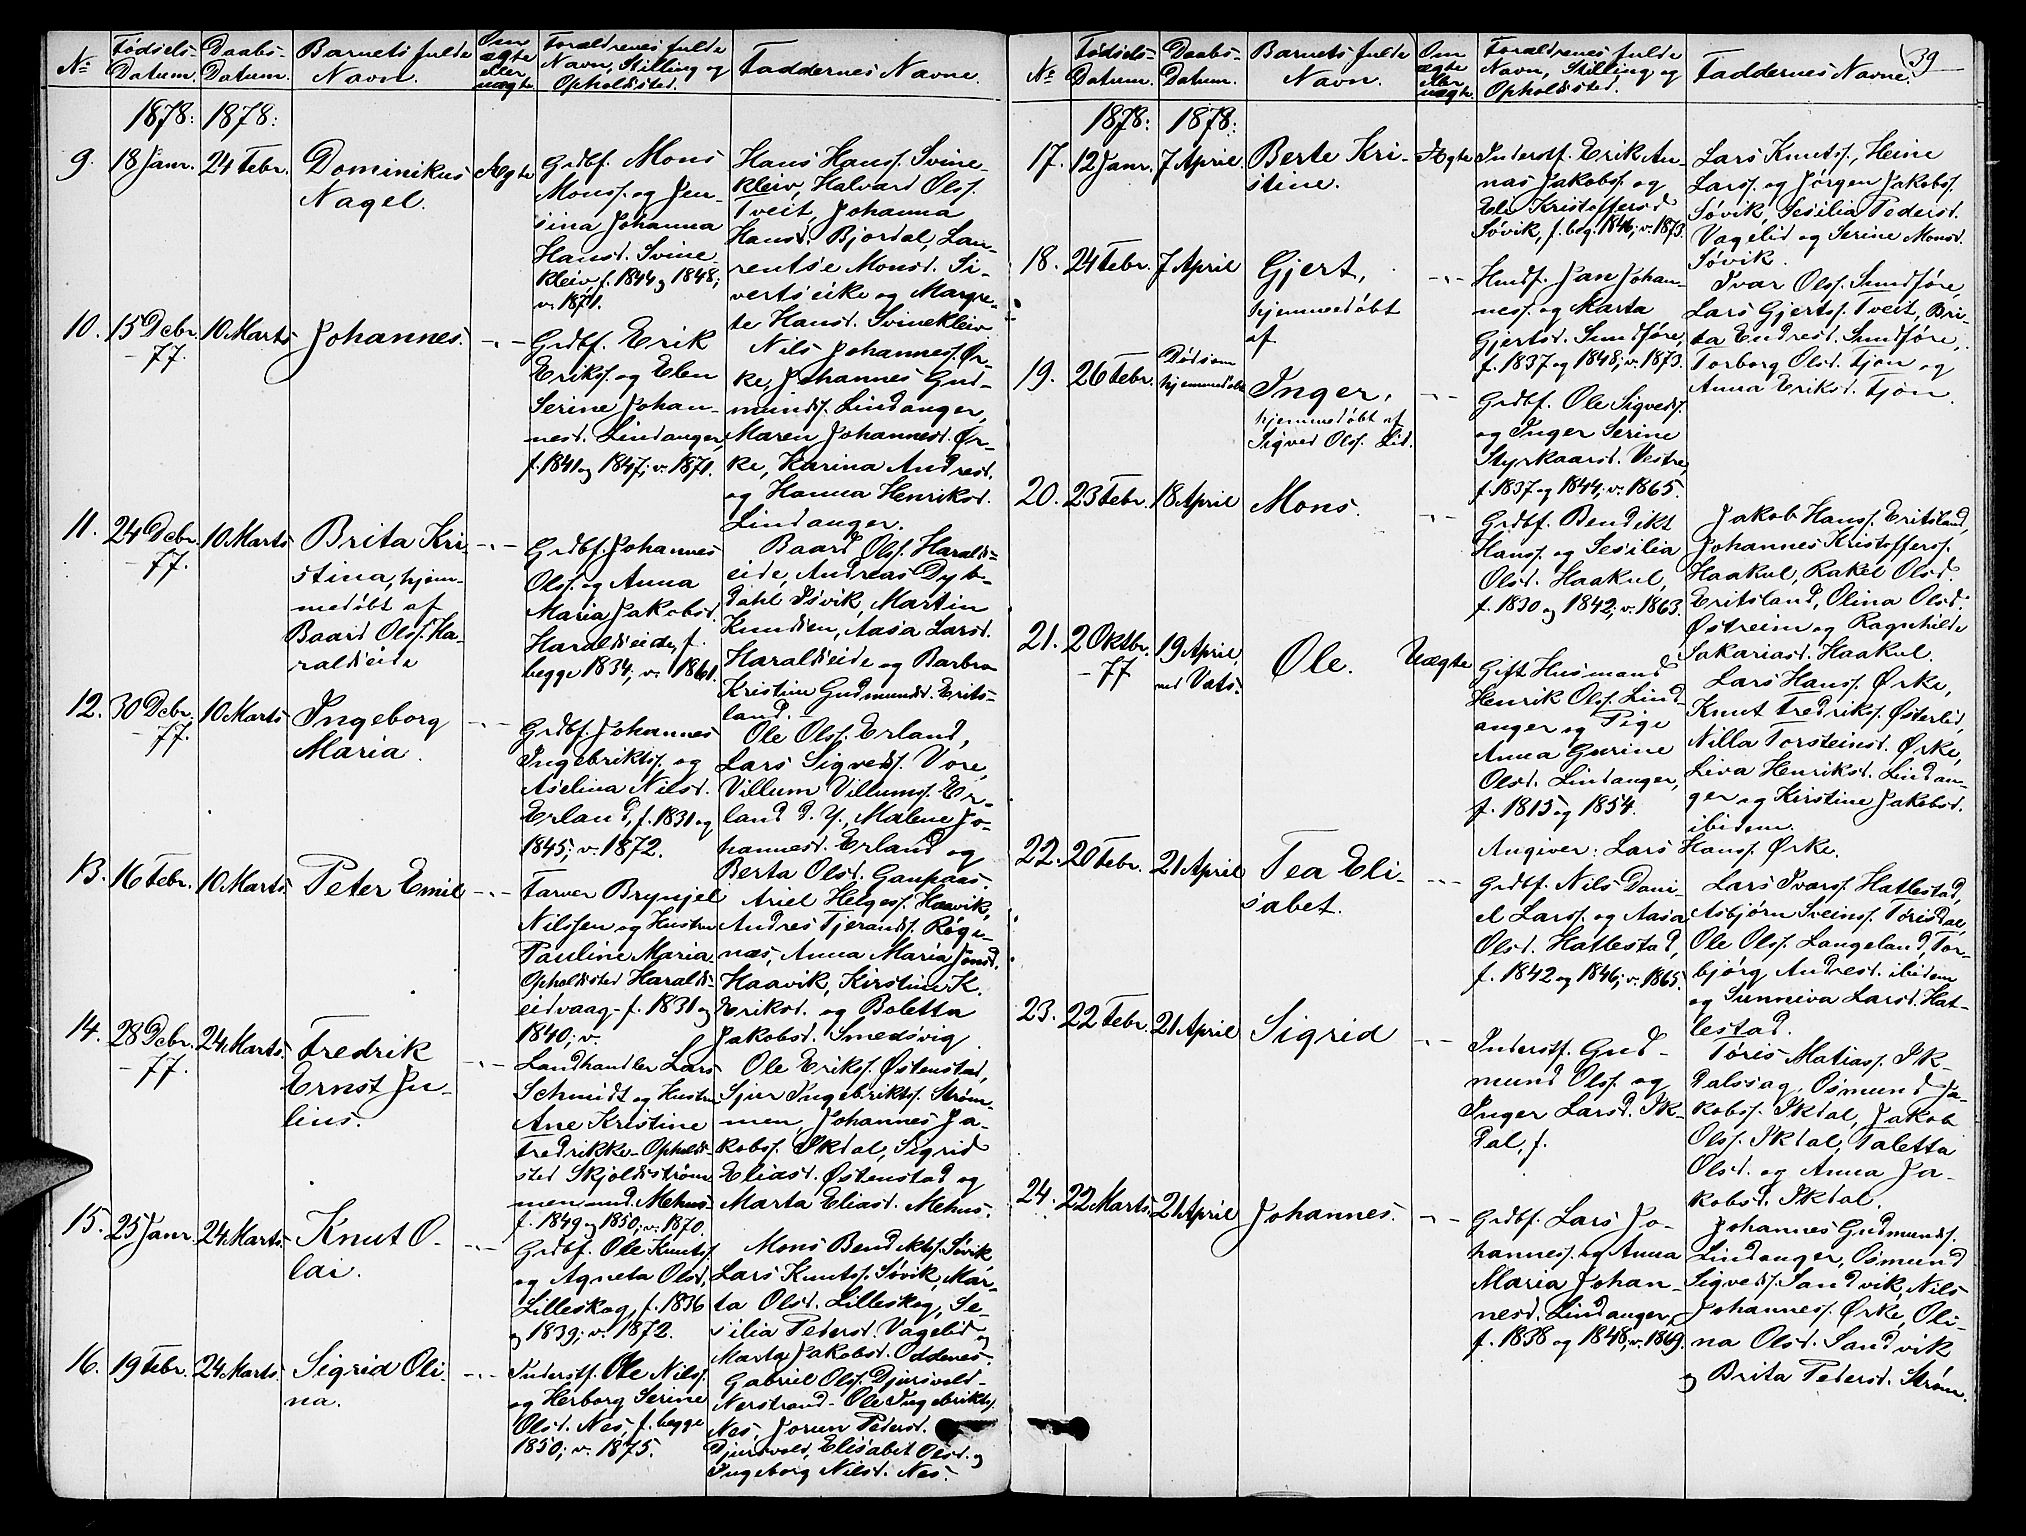 39
No
Fødsels-
Datum.
Daabs-
Datum.
Barnets fulde
Navn.
Om
ægte
eller
uægte
Forældrenes fulde
Navn, Stilling og
Opholdssted.
Faddernes Navne.
1878: 1878:
9. 18 Janr. 24 Febr.
Dominikus
Nagel.
Ægte
Grdbf. Mons
Monss. og Jen-
sina Johanna
Hansd. Svine-
kleiv, f. 1844 og 1848;
v. 1871.
Hans Hanss. Svine-
kleiv, Halvard Olss.
Tveit, Johanna
Hansd. Bjordal, Lau-
rentse Monsd. Si-
vertseike og Margre-
te Hansd. Svinekleiv
10. 15 Decbr. 10 Marts
-77.
Johannes.
-"-
Grdbf. Erik
Erikss. og Elen
Serine Johan-
nesd. Lindanger,
f. 1841 og 1847; v. 1871.
Nils Johanness. Ør-
ke, Johannes Gud-
mundss. Lindanger,
Maren Johannesd. Ør-
ke, Karina Andresd.
og Hanna Henriksd.
Lindanger.
11. 24 Decbr. 10 Marts
-77.
Brita Kri-
stina, hjem-
medøbt af
Baard Olss. Ha-
raldseide
-"-
Grdbf. Johannes
Olss. og Anna
Maria Jakobsd.
Haraldseide, f.
begge 1834; v. 1861.
Baard Olss. Haralds-
eide, Andreas Dyb-
dahl Isvik, Martin
Knudsen, Aasa Larsd.
Haraldseide og Barbro
Kristine Gudmundsd. Erits-
land.
12. 30 Decbr. 10 Marts
-77.
Ingeborg
Maria.
-"-
Grdbf. Johannes
Ingebriktss. og
Aselina Nilsd.
Erland, f. 1831 og
1845; v. 1872.
Ole Olss. Erland,
Lars Sigvedss. Vore,
Villum Villumss. Er-
land d. Y., Malene Jo-
hannesd. Erland og
Berta Olsd. Gaupaas.
13. 16 Febr. 10 Marts.
Peter Emil
-"-
Farver Brynjel
Nilssen og Hustru
Pauline Maria
Opholdssted Haralds-
eidvaag - f. 1831 og
1840; v.
Ariel Helgess. Haavik,
Andres Tjerandss. Røge-
næs, Anna Maria Jonsd.
Haavik, Kirstine K.
Eriksd. og Boletta
Jakobsd. Smedsvig.
14. 28 Decbr. 24 Marts.
-77.
Fredrik
Ernst Ju-
lius.
-"-
Landhandler Lars
Schmidt og Hustru
Ane Kristine
Fredrikke - Opholds-
sted Skjoldstrøm-
men und. Mehus-
f. 1849 og 1850; v. 1870.
Ole Erikss. Østenstad,
Sjur Ingebriktss. Strøm-
men, Johannes Ja-
kobss. Ikdal, Sigrid
Eliasd. Østenstad og
Marta Eliasd. Mehus.
15. 25 Janr. 24 Marts.
Knut O-
lai.
-"-
Grdbf. Ole Knutss.
og Agneta Olsd.
Lilleskog, f. 1836
og 1839; v. 1872.
Mons Bendiktss. Søvik,
Lars Knutss. Søvik, Mar-
ta Olsd. Lilleskog, Se-
silia Pedersd. Vagelid og
Marta Jakobsd. Oddenes.
16. 19 Febr. 24 Marts.
Sigrid Oli-
na.
-"-
Inderstf. Ole Nilss.
og Herborg Serine
Olsd. Nes, f. begge
1850; v. 1875.
Gabriel Olss. Djursvold-
Nerstrand - Ole Ingebriktss.
Nes, Jorun Pedersd.
Djursvold, Elisabet Olsd. og
Ingeborg Nilsd. Nes.
No
Fødsels-
Datum.
Daabs-
Datum.
Barnets fulde
Navn.
Om
ægte
eller
uægte
Forældrenes fulde
Navn, Stilling og
Opholdssted.
Faddernes Navne.
1878: 1878:
17. 12 Janr. 7 April
Berte Kri-
stine.
Ægte
Inderstf. Erik An-
nas Jakobss. og
Eli Kristoffersd.
Søvik, f. beg. 1846; v. 1873.
Lars Knutss., Heine
Larss. og Jørgen Jakobss.
Søvik, Sesilia Pedersd.
Vagelid og Serine Monsd.
Søvik.
18. 24 Febr. 7 April
Gjert,
hjemmedøbt
af
-"-
Husf. Jan Johan-
ness. og Marta
Gjertsd. Sundføre,
f. 1837 og 1848; v. 1873.
Ivar Olss. Sundføre,
Lars Gjertss. Tveit, Bri-
ta Endresd. Sundføre,
Torborg Olsd. Tjøn og
Anna Eriksd. Tjøn.
19. 26 Febr.
Død som
hjemmedøbt
Inger,
hjemmedøbt af
Sigved Olss. Lid.
-"-
Grdbf. Ole Sigvedss.
og Inger Serine
Styrkaarsd. Vestre,
f. 1837 og 1844; v. 1865.
20. 23 Febr. 18 April
Mons.
-"-
Grdbf. Bendikt
Hanss. og Sesilia
Olsd. Haakul,
f. 1830 og 1842; v. 1863.
Jakob Hanss. Eritsland,
Johannes Kristofferss.
Haakul, Rakel Olsd.
Eritsland, Olina Olsd.
Østreim og Ragnhilde
Sakariasd. Haakul.
21. 2 Oktbr. 19 April
-77 ved Vats.
Ole.
Uægte
Gift Husmand
Henrik Olss. Lind-
anger og Pige
Anna Gurine
Olsd. Lindanger,
f. 1815 og 1854.
Angiver: Lars Hanss. Ørke.
Lars Hanss. Ørke,
Knut Fredrikss. Østerlid,
Nilla Torsteinsd. Ørke,
Liva Henriksd. Lindan-
ger og Kirstine Jakobsd.
ibidem.
22. 20 Febr. 21 April
Tea Eli-
sabet.
-"-
Grdbf. Nils Dani-
el Larss. og Aasa
Olsd. Hatlestad,
f. 1842 og 1846; v. 1865.
Lars Ivarss. Hatlestad,
Asbjørn Sveinss. Tørisdal,
Ole Olss. Langeland, Tor-
bjørg Andresd. ibidem
og Sunniva Larsd. Hat-
lestad.
23. 22 Febr. 21 April
Sigrid
-"-
Inderstf. Gud-
mund Olss. og
Inger Larsd. Ik-
dal, f.
Tøris Matiass. Ik-
dalssag, Osmund Ja-
kobss. Ikdal, Jakob
Olss. Ikdal, Taletta
Olsd. og Anna Ja-
kobsd. Ikdal.
24. 22 Marts. 21 April
Johannes.
-"-
Grdbf. Lars Jo-
hanness. og Anna
Maria Johan-
nesd. Lindanger,
f. 1838 og 1848; v. 1869.
Johannes Gudmundss.
Lindanger, Osmund
Sigvedss. Sandvik, Nils
Johanness. Ørke, Oli-
na Olsd. Sandvik
og Brita Pedersd. Strøm.